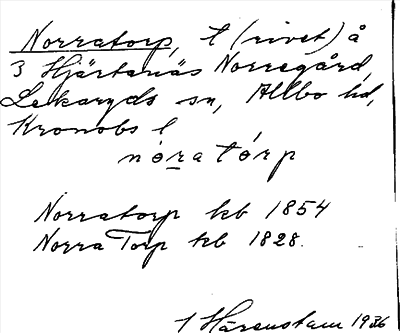 Norratorp, t (rivet) å
3 Hjärtanäs Norregård,
Lekaryds sn, Allbo hd,
Kronobs l
nò́ra tórp
Norratorp kb 1854
Norra Torp kb 1828.
Härenstam 1936